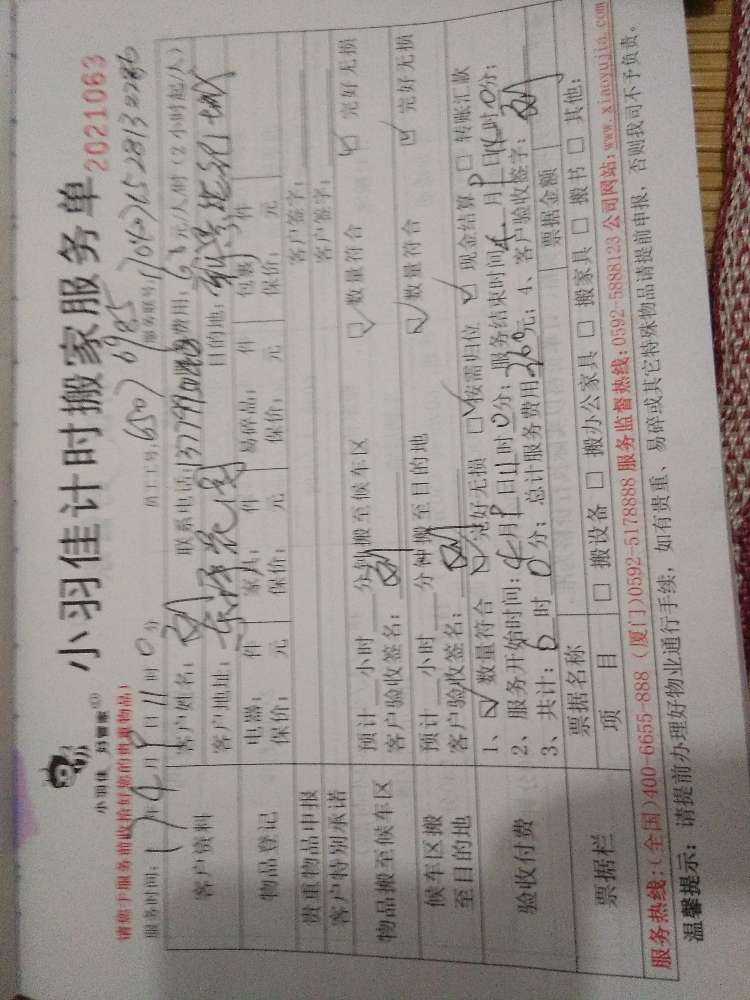 小羽佳计时搬家服务单
小羽佳 好管家
2021063
请您于服务前收拾好您的贵重物品！
服务时间：17年4月9日11时0分 员工工号：6507 6985 服务账号：
客户资料 客户姓名： 联系电话： 服务费用：63元/人/时（2小时起/人）
客户地址： 目的地：
物品登记 电器： 件 家具： 件 易碎品： 件 包裹： 件
保价： 元 保价： 元 保价： 元 保价： 元
贵重物品申报 客户签字：
客户特别承诺 客户签字：
物品搬至候车区 预计 小时 分钟搬至候车区
客户验收签名： 数量符合 完好无损
候车区搬至目的地 预计 小时 分钟搬至目的地
客户验收签名： 数量符合 完好无损
验收付费 1、数量符合 完好无损 按需归位 现金结算 转账汇款
2、服务开始时间：4月9日11时0分；服务结束时间4月9日 时0分；
3、共计： 时0分；总计服务费用 元；4、客户验收签字：
票据栏 票据名称 票据金额
项 目 搬设备 搬办公家具 搬家具 搬书 其他：
服务热线：（全国）400-6655-888（厦门）0592-5178888 服务监督热线：0592-5888123 公司网站：www.xiaoyujia.com
温馨提示：请提前办理好物业通行手续，如有贵重、易碎或其它特殊物品请提前申报，否则我司不予负责。